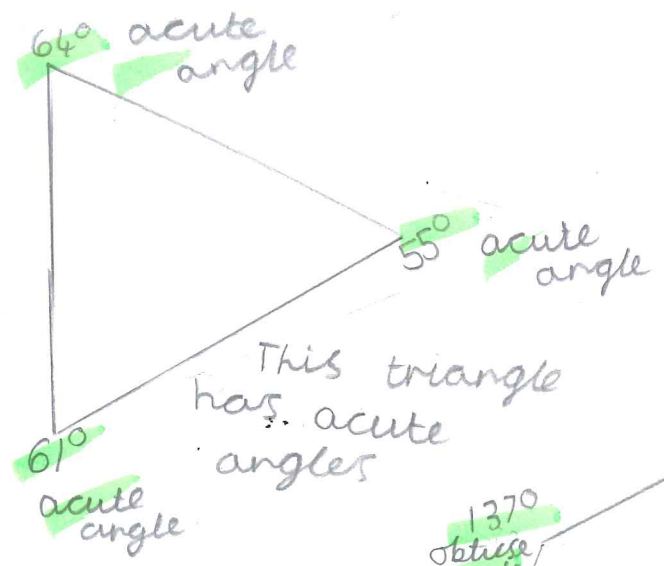 64°
acute
angle
55°
acute
angle
This triangle
has acute
angles
61°
acute
angle
137°
obtuse